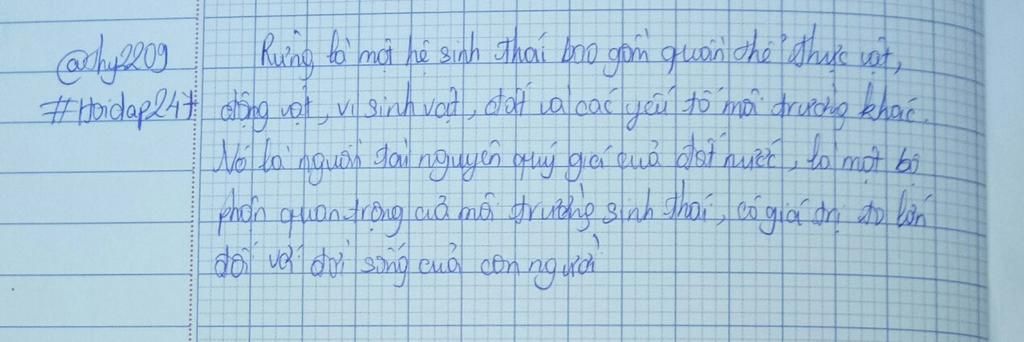 @thy2209
#Hoidap247
Rừng là một hệ sinh thái bao gồm quần thể thực vật,
động vật, vi sinh vật, đất và các yếu tố môi trường khác.
Nó là nguồn tài nguyên quý giá của đất nước, là một bộ
phận quan trọng của môi trường sinh thái, có giá trị to lớn
đối với đời sống của con người